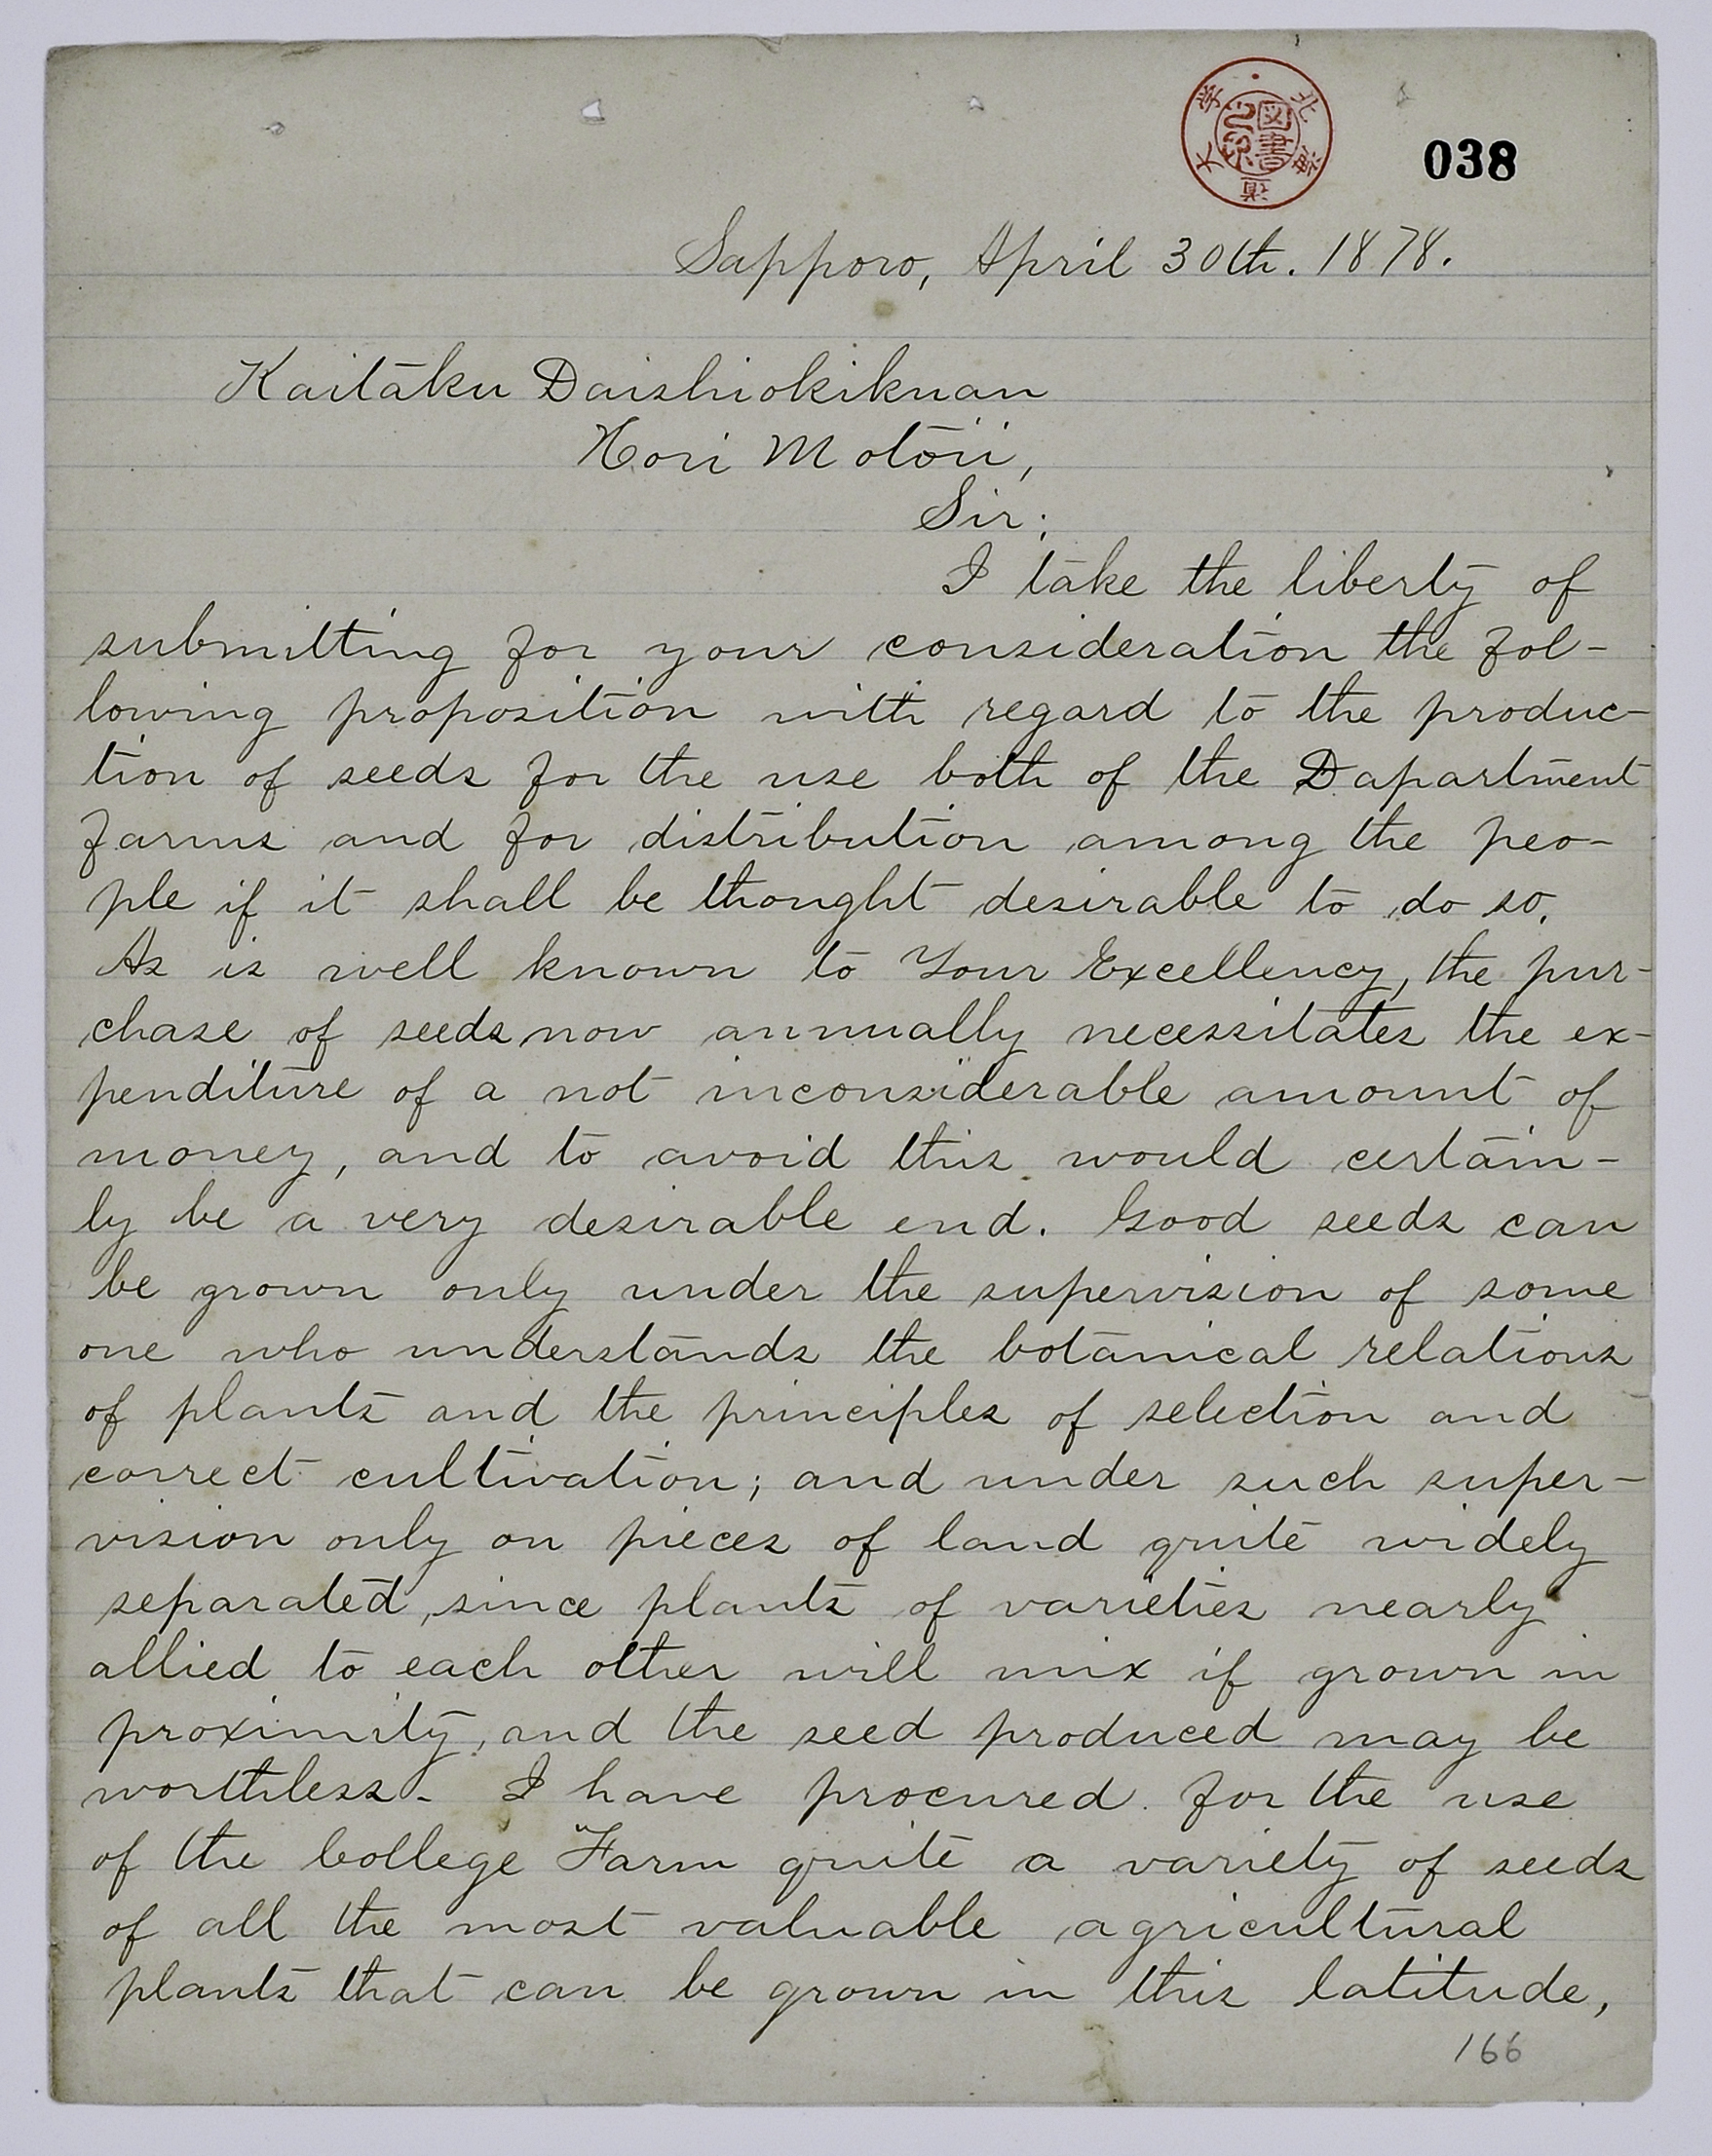 北海道大学
図書之印
038
Sapporo, April 30th. 1878.
Kaitaku Daishiokikuan
Hori Motoii,
Sir;
I take the liberty of
submitting for your consideration the fol-
lowing proposition with regard to the produc-
tion of seeds for the use both of the Dapartment
farms and for distribution among the peo-
ple if it shall be thought desirable to do so.
As is well known to Your Excellency, the pur-
chase of seeds now annually necessitates the ex-
penditure of a not inconsiderable amount of
money, and to avoid this would certain-
ly be a very desirable end. Good seeds can
be grown only under the supervision of some
one who understands the botanical relations
of plants and the principles of selection and
correct cultivation; and under such super-
vision only on pieces of land quite widely
separated, since plants of varieties nearly
allied to each other will mix if grown in
proximity, and the seed produced may be
worthless. I have procured for the use
of the College Farm quite a variety of seeds
of all the most valuable agricultural
plants that can be grown in this latitude,
166